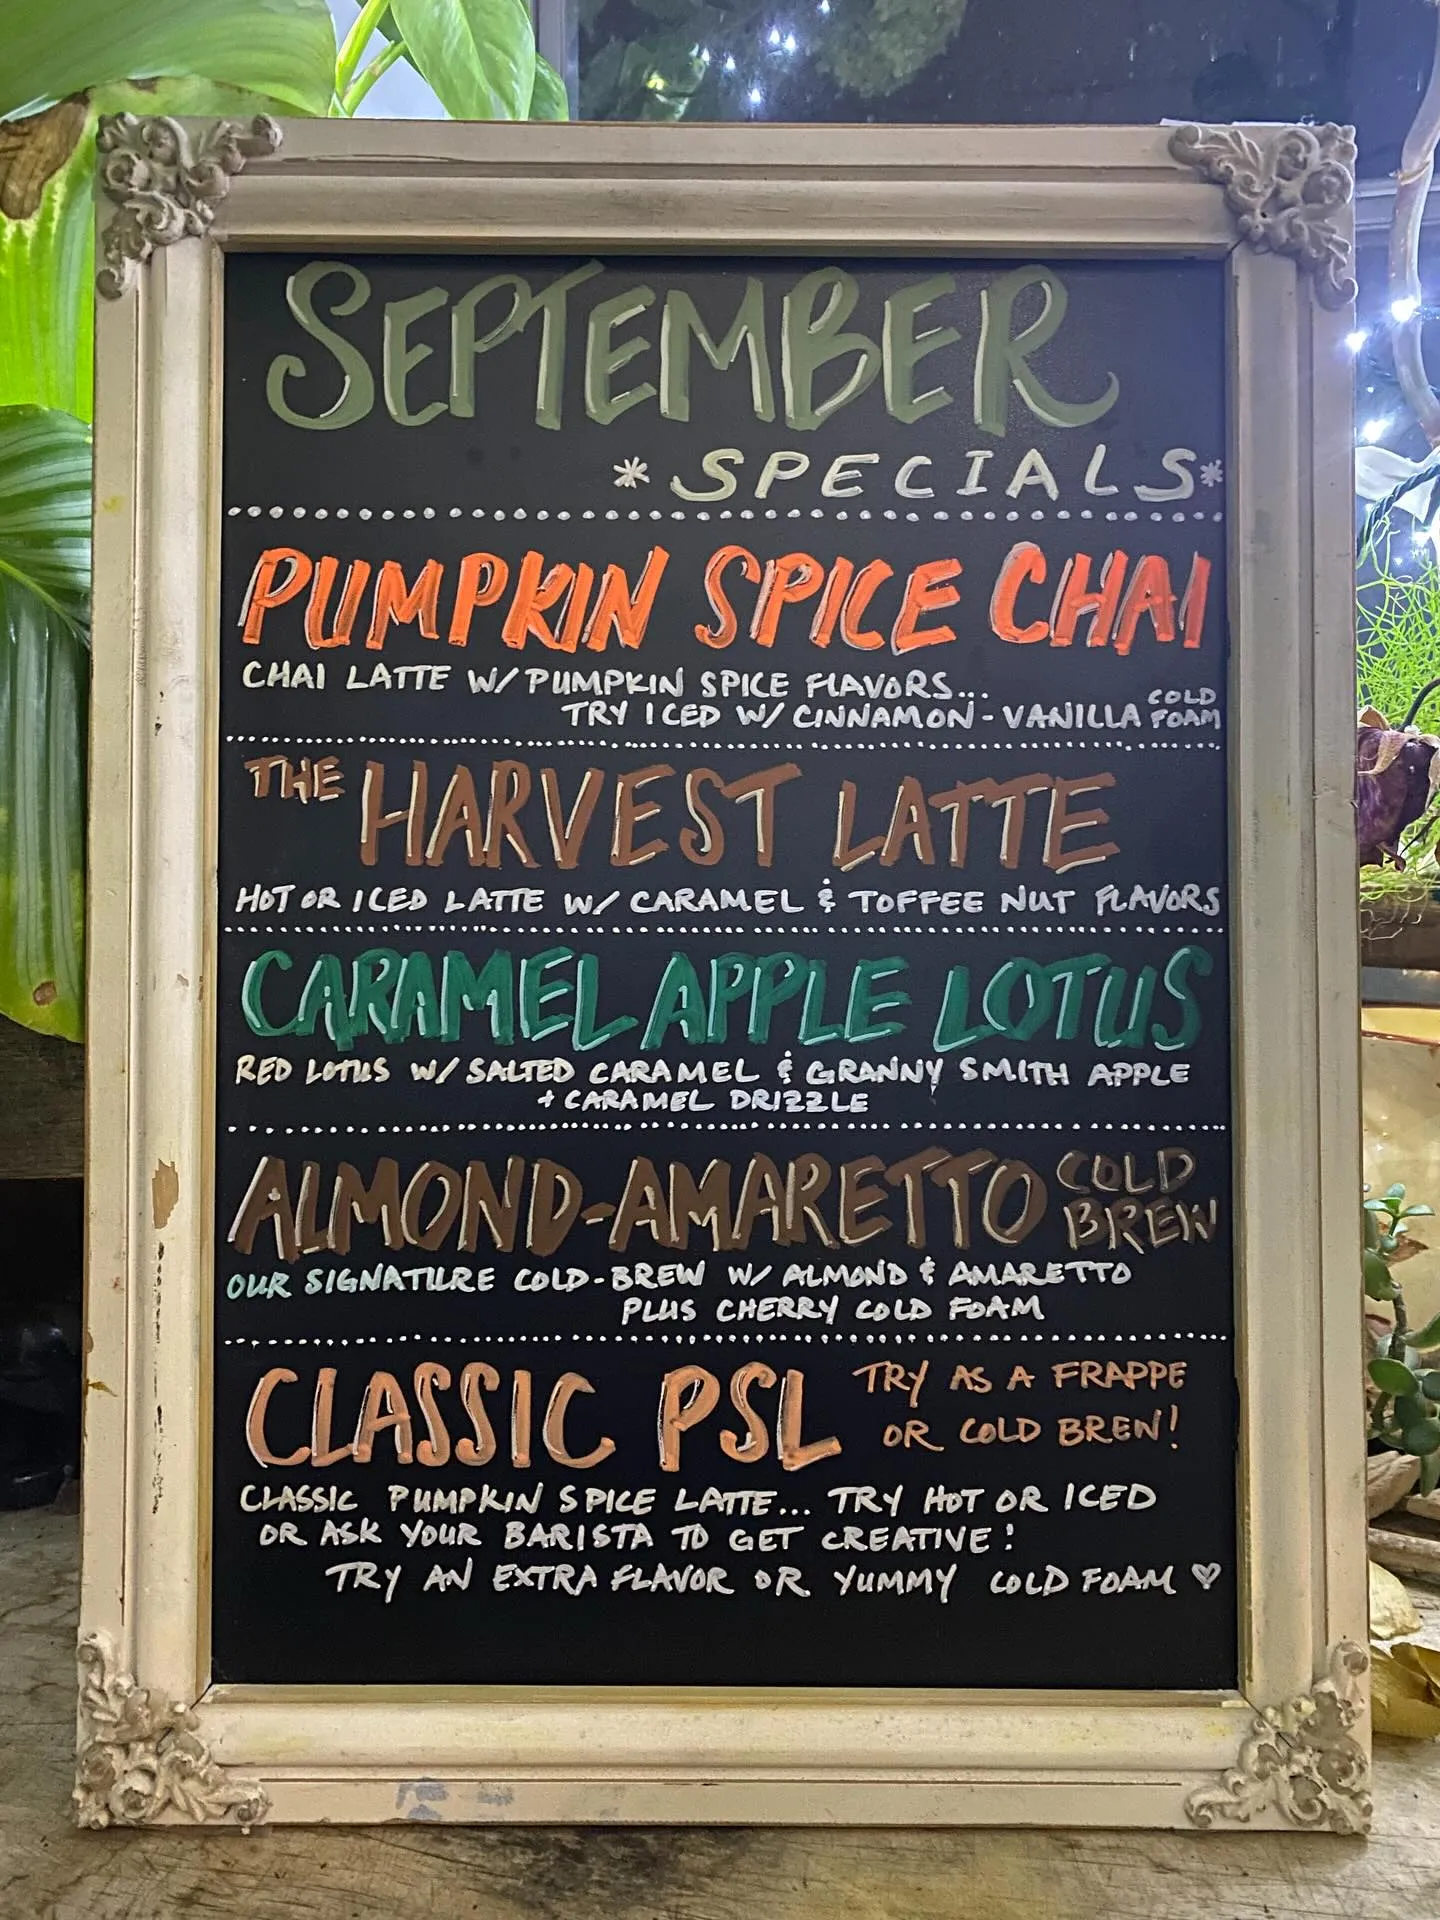 SEPTEMBER
*SPECIALS*
PUMPKIN SPICE CHAI
CHAI LATTE W/ PUMPKIN SPICE FLAVORS...
TRY ICED W/ CINNAMON-VANILLA COLD FOAM
THE HARVEST LATTE
HOT OR ICED LATTE W/ CARAMEL & TOFFEE NUT FLAVORS
CARAMEL APPLE LOTUS
RED LOTUS W/ SALTED CARAMEL & GRANNY SMITH APPLE
+ CARAMEL DRIZZLE
ALMOND-AMARETTO COLD BREW
OUR SIGNATURE COLD-BREW W/ ALMOND & AMARETTO
PLUS CHERRY COLD FOAM
CLASSIC PSL
TRY AS A FRAPPE
OR COLD BREW!
CLASSIC PUMPKIN SPICE LATTE... TRY HOT OR ICED
OR ASK YOUR BARISTA TO GET CREATIVE!
TRY AN EXTRA FLAVOR OR YUMMY COLD FOAM ♡